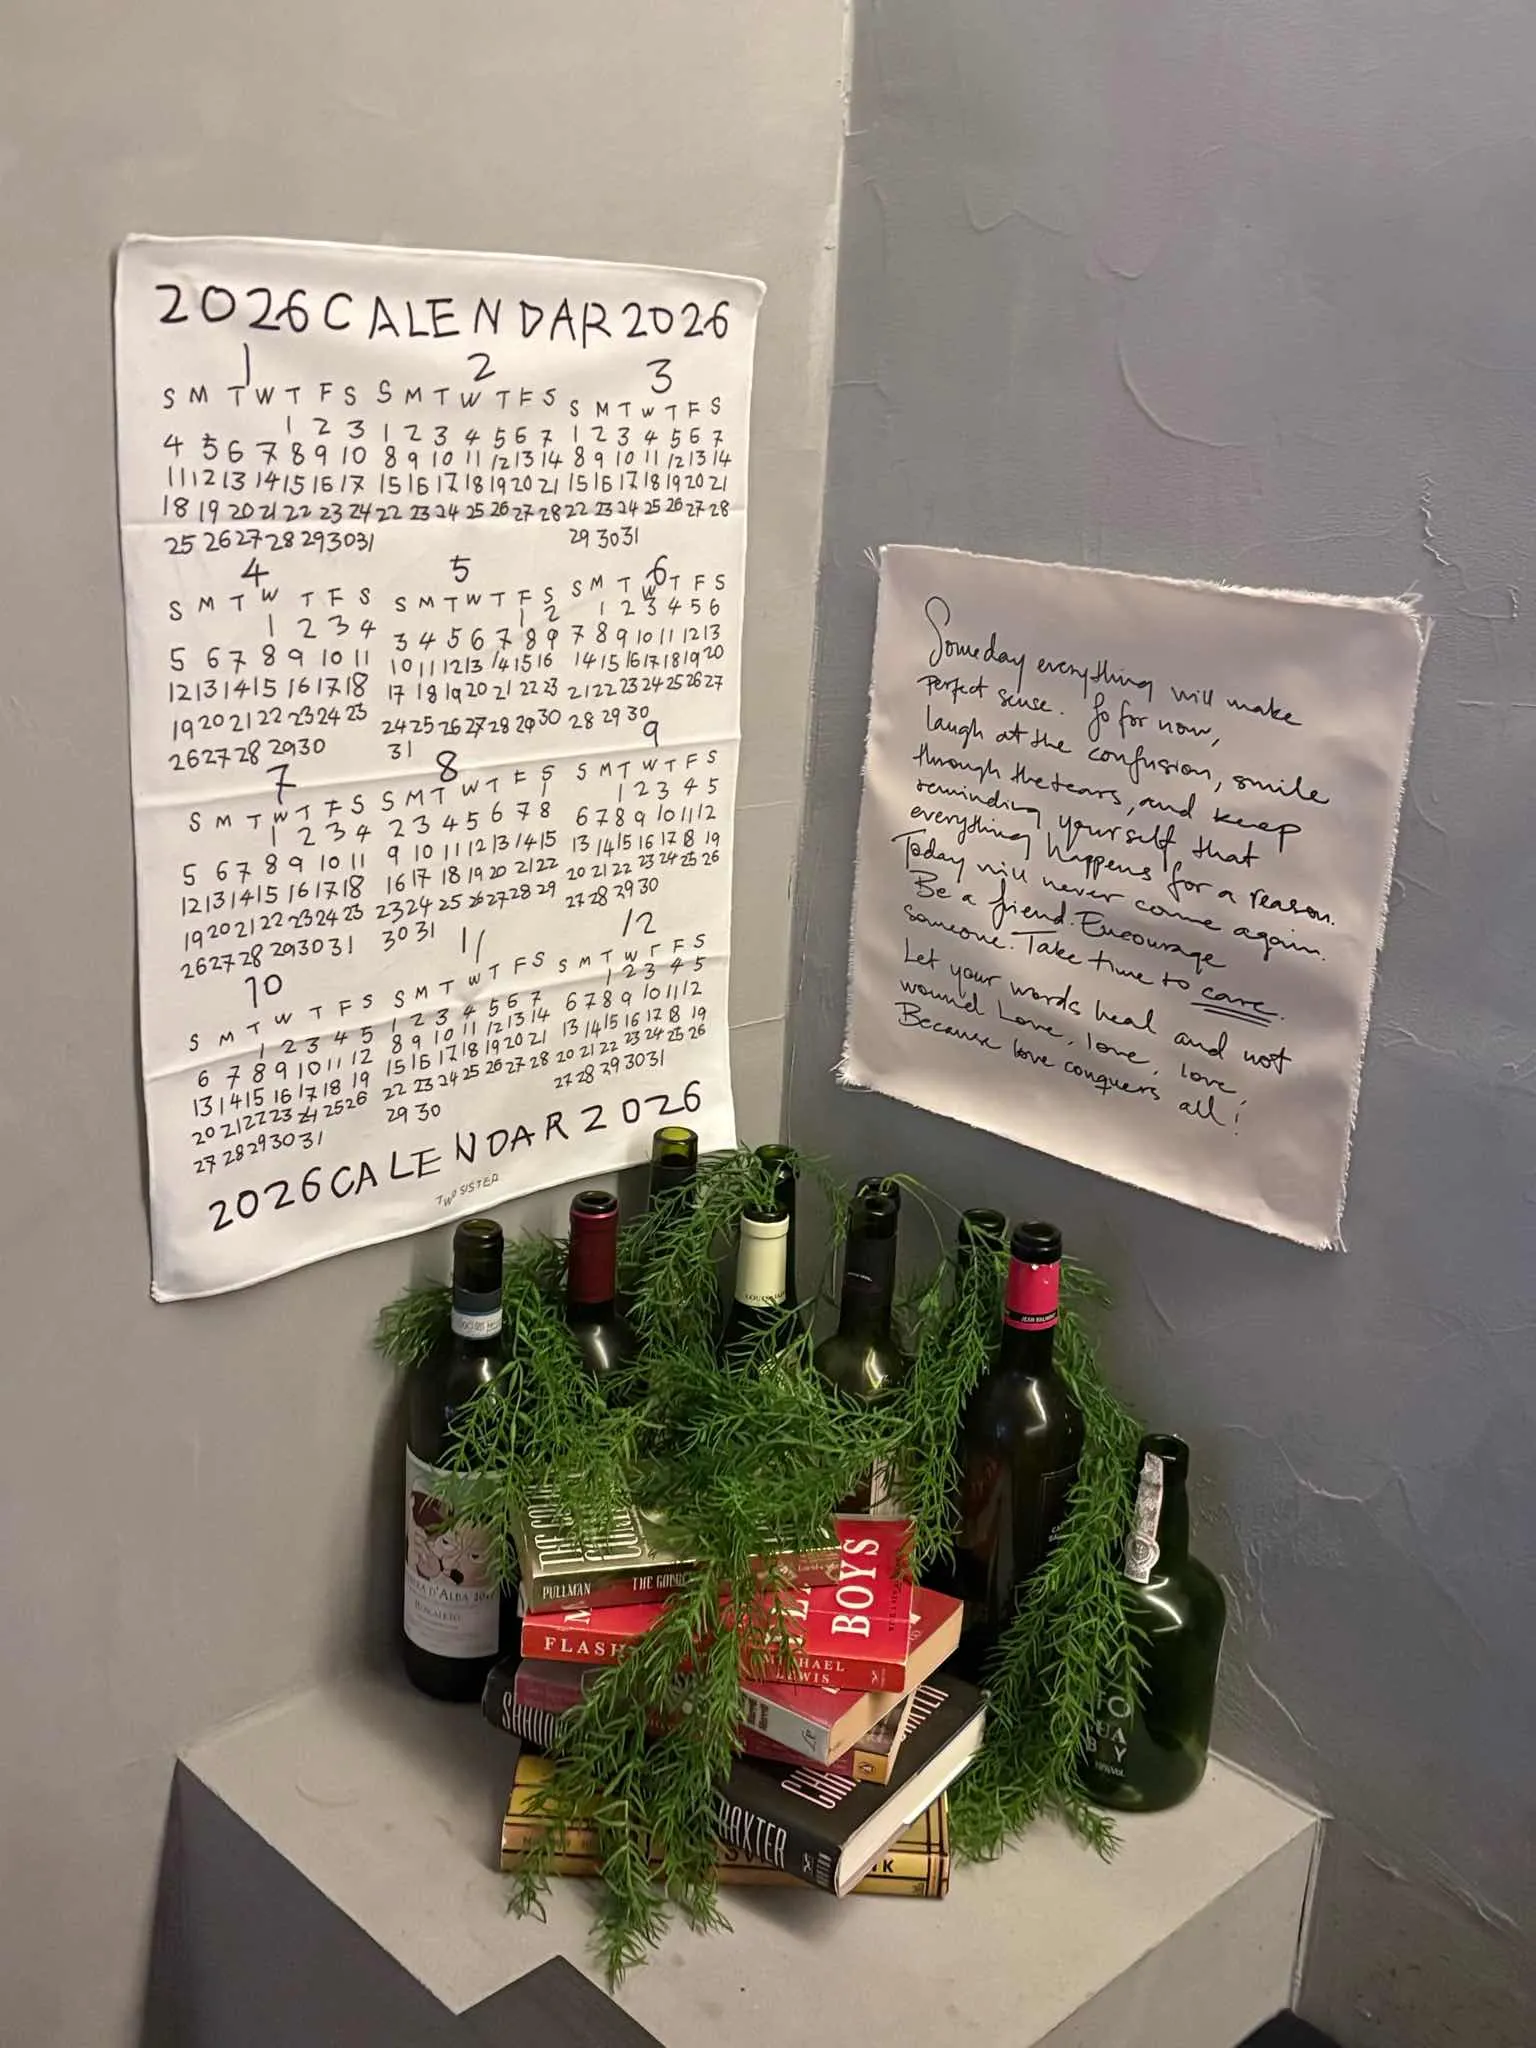 2026 CALENDAR 2026
1
S M T W T F S
1 2 3
4 5 6 7 8 9 10
11 12 13 14 15 16 17
18 19 20 21 22 23 24
25 26 27 28 29 30 31
2
S M T W T F S
1 2 3 4 5 6 7
8 9 10 11 12 13 14
15 16 17 18 19 20 21
22 23 24 25 26 27 28
3
S M T W T F S
1 2 3 4 5 6 7
8 9 10 11 12 13 14
15 16 17 18 19 20 21
22 23 24 25 26 27 28
29 30 31
4
S M T W T F S
1 2 3 4
5 6 7 8 9 10 11
12 13 14 15 16 17 18
19 20 21 22 23 24 25
26 27 28 29 30
5
S M T W T F S
1 2
3 4 5 6 7 8 9
10 11 12 13 14 15 16
17 18 19 20 21 22 23
24 25 26 27 28 29 30
31
6
S M T W T F S
1 2 3 4 5 6
7 8 9 10 11 12 13
14 15 16 17 18 19 20
21 22 23 24 25 26 27
28 29 30
7
S M T W T F S
1 2 3 4
5 6 7 8 9 10 11
12 13 14 15 16 17 18
19 20 21 22 23 24 25
26 27 28 29 30 31
8
S M T W T F S
1
2 3 4 5 6 7 8
9 10 11 12 13 14 15
16 17 18 19 20 21 22
23 24 25 26 27 28 29
30 31
9
S M T W T F S
1 2 3 4 5
6 7 8 9 10 11 12
13 14 15 16 17 18 19
20 21 22 23 24 25 26
27 28 29 30
10
S M T W T F S
1 2 3 4 5
6 7 8 9 10 11 12
13 14 15 16 17 18 19
20 21 22 23 24 25 26
27 28 29 30 31
11
S M T W T F S
1 2 3 4 5 6 7
8 9 10 11 12 13 14
15 16 17 18 19 20 21
22 23 24 25 26 27 28
29 30
12
S M T W T F S
1 2 3 4 5
6 7 8 9 10 11 12
13 14 15 16 17 18 19
20 21 22 23 24 25 26
27 28 29 30 31
2026 CALENDAR 2026
TWO SISTER
Someday everything will make
perfect sense. So for now,
laugh at the confusion, smile
through the tears, and keep
reminding yourself that
everything happens for a reason.
Today will never come again.
Be a friend. Encourage
someone. Take time to care.
Let your words heal and not
wound Love, love, love
Because love conquers all!
JEAN BALMONT
D'ALBA
PULLMAN THE GOLDEN
FLASH
BOYS
MICHAEL
LEWIS
BAXTER